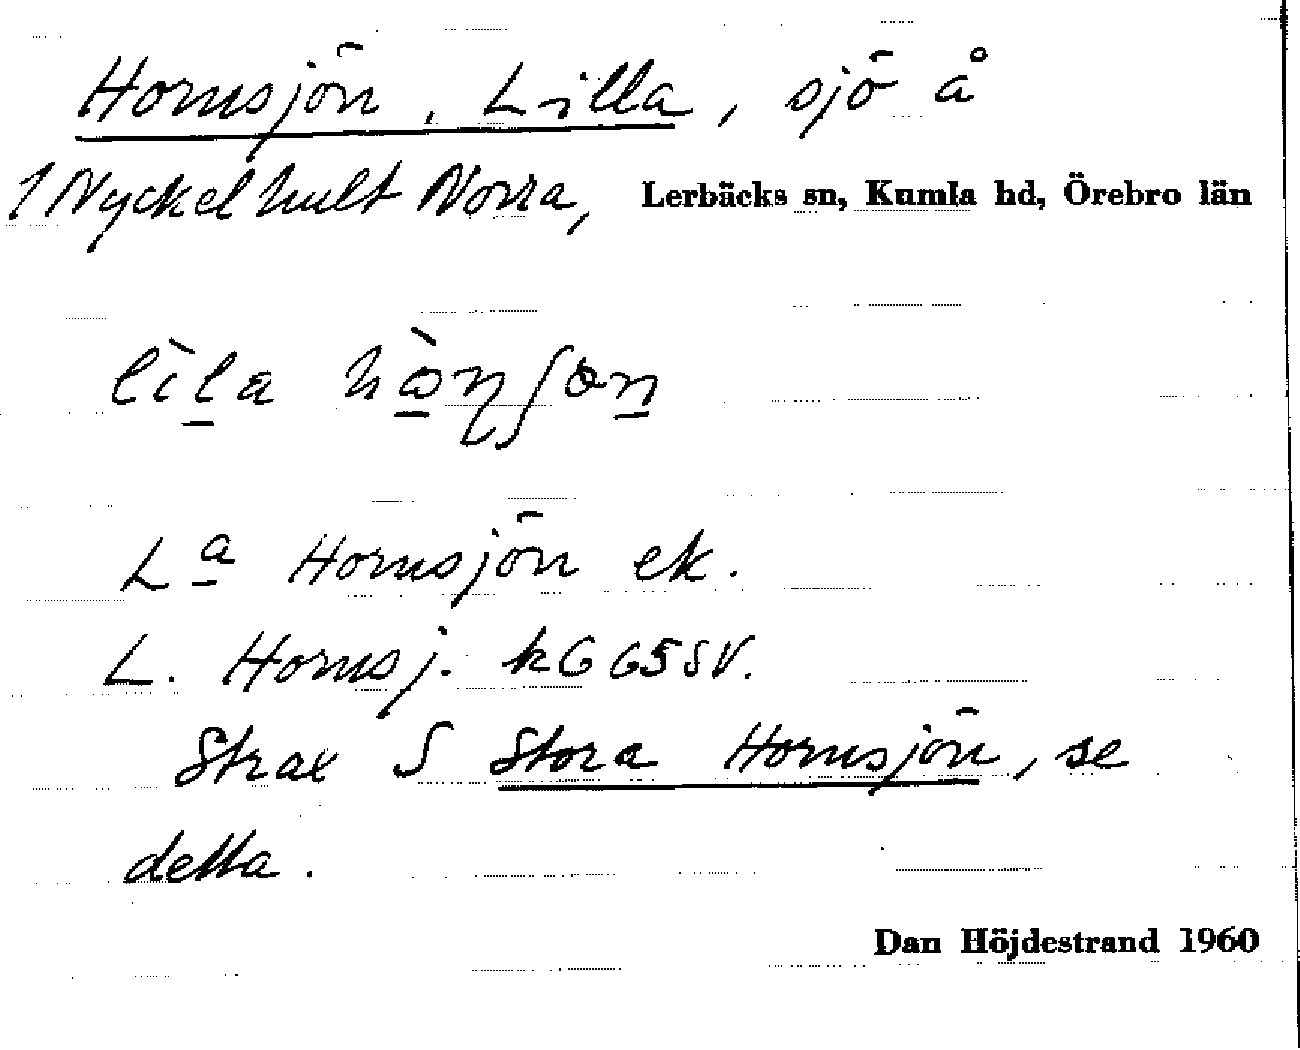 Hornsjön, Lilla, sjö å
1 Nyckelhult Norra, Lerbäcks sn, Kumla hd, Örebro län
La Hornsjön ek.
L. Hornsj. kG G5SV.
Strax S Stora Hornsjön, se
detta.
Dan Höjdestrand 1960